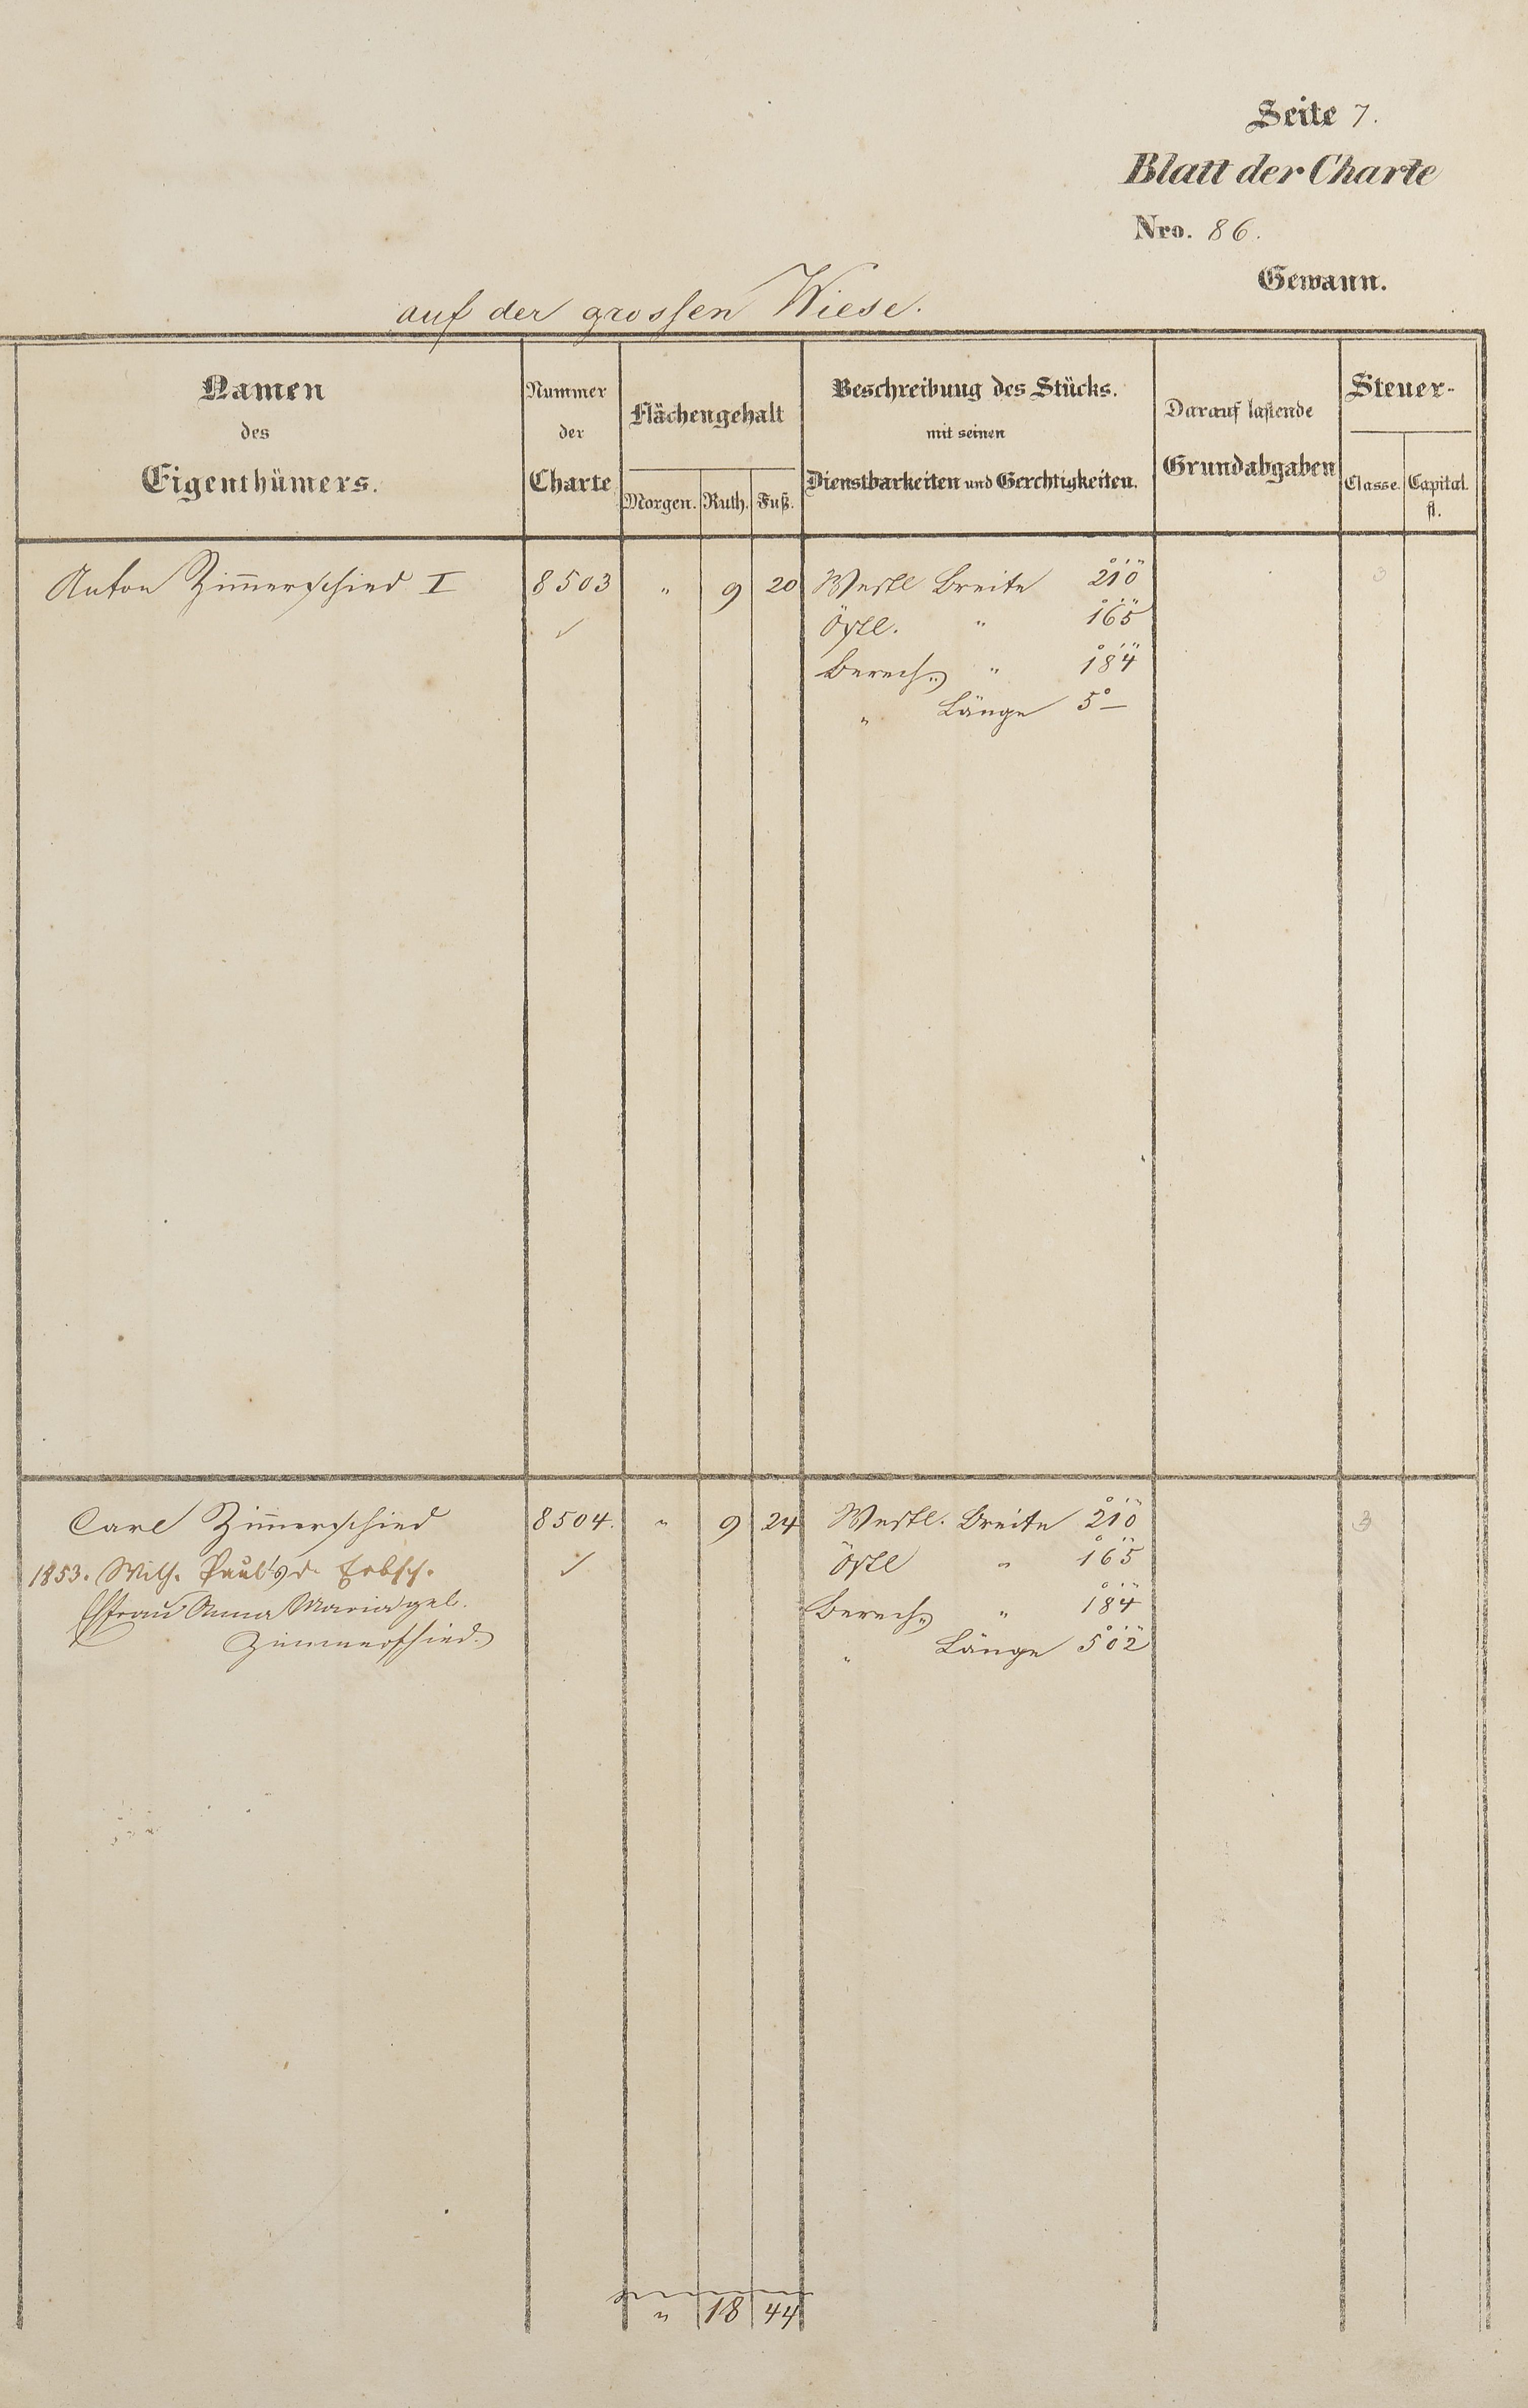 Seite 7.
Blatt der Charte
Nro. 86.
Gewann.
auf der grossen Wiese.
Namen
des
Eigenthümers.
Nummer
der
Charte
Flächengehalt
Morgen. Ruth. Fuß.
Beschreibung des Stücks.
mit seinen
Dienstbarkeiten und Gerechtigkeiten.
Darauf lastende
Grundabgaben
Steuer-
Classe. Capital.
fl.
Anton Zimmerschied I 8503 " 9 20 Westl Breite 2° 1' 0" 3
Östl. " 1° 6' 5"
Berech. " 1° 8' 4"
" Länge 5° —
Carl Zimmerschied 8504. " 9 24 Westl. Breite 2° 1' 0" 3
1853. Wilh. Paul's Ehefrau Anna Maria geb. Östl " 1° 6' 5"
Berech. " 1° 8' 4"
Zimmerschied. " Länge 5° 0' 2"
" 18 44